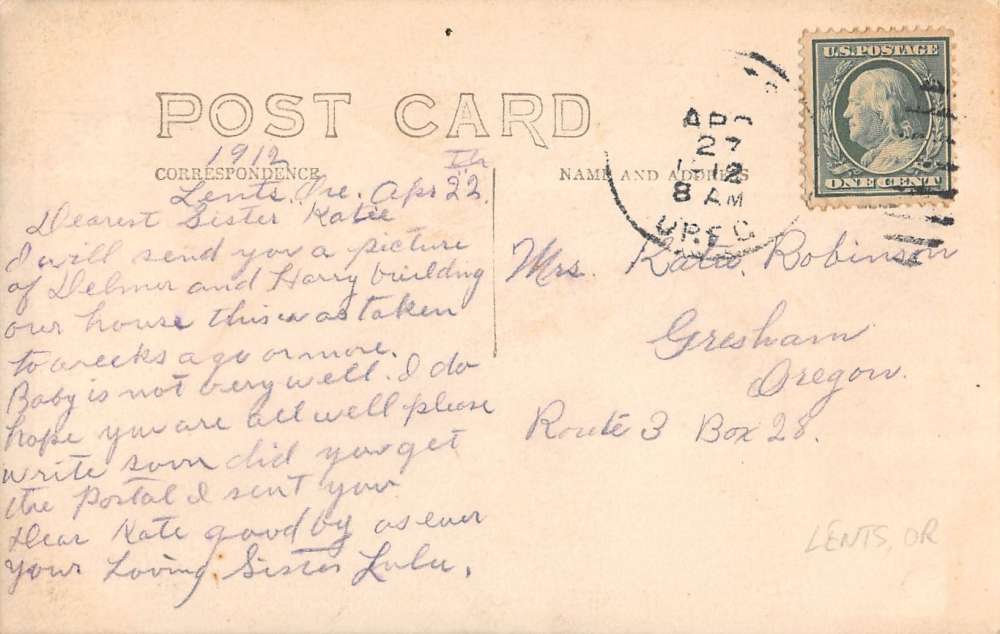 POST CARD
1912
CORRESPONDENCE
Lents, Ore. Apr 22.
Dearest Sister Katie
I will send you a picture
of Delmer and Harry building
our house this was taken
to weeks ago or more.
Baby is not very well. I do
hope you are all well please
write soon did you get
the Postal I sent you
Dear Kate good by as ever
your Loving Sister Lulu.
NAME AND ADDRESS
U.S. POSTAGE
ONE CENT
APR
27
12
8 AM
OREG
Mrs. Katie Robinson
Gresham
Oregon.
Route 3 Box 28.
LENTS, OR